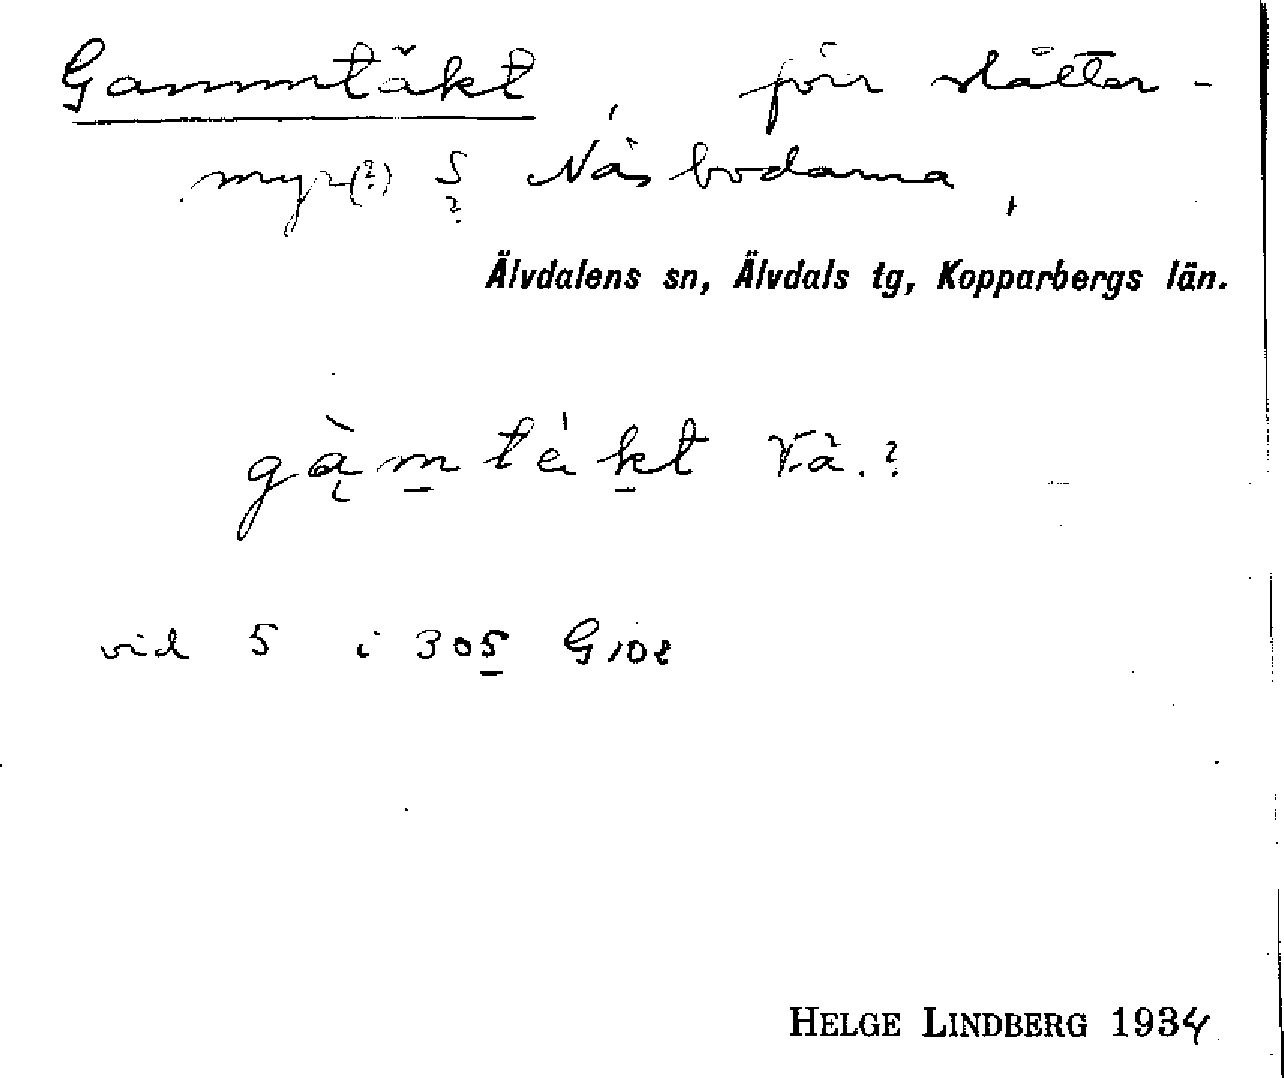 Gammtäkt, förr slåtter-
myr(?) S ? Näsbodarna,
Älvdalens sn, Älvdals tg, Kopparbergs län.
gàmtékt Vå.?
vid 5 i 305 G102
HELGE LINDBERG 1934